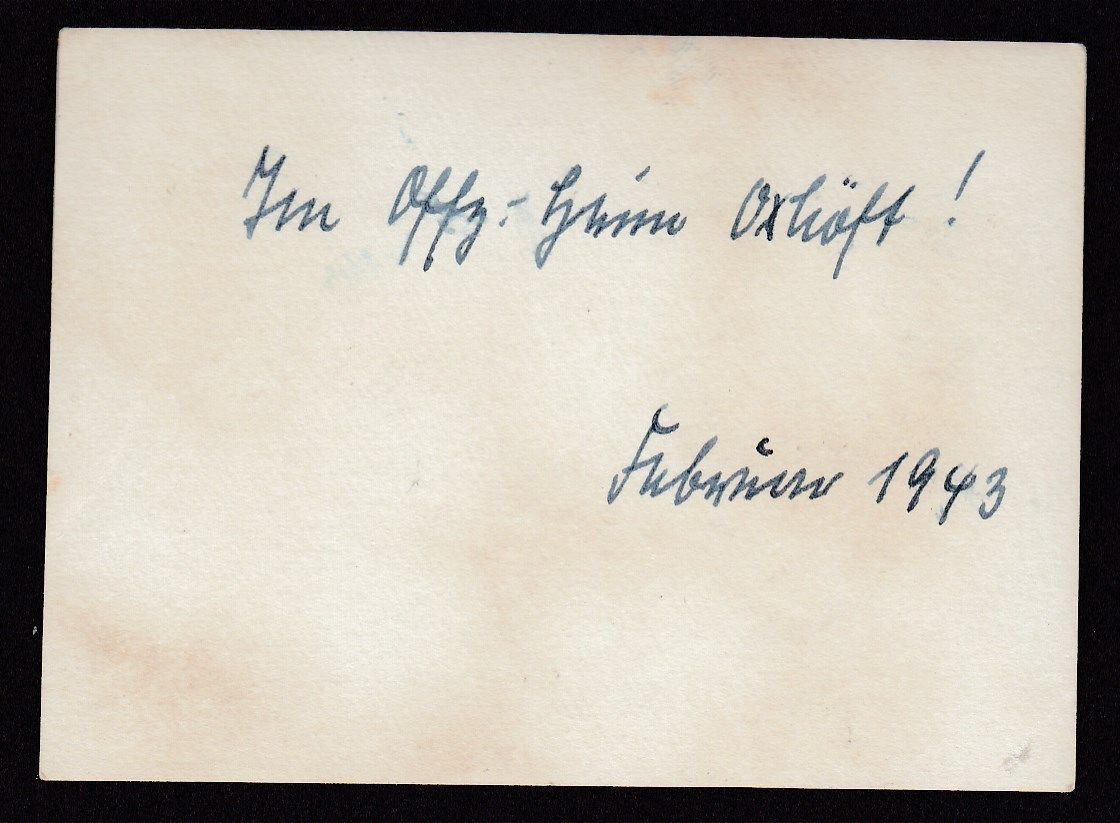 Im Offz.-Heim Oxhöft!
Februar 1943